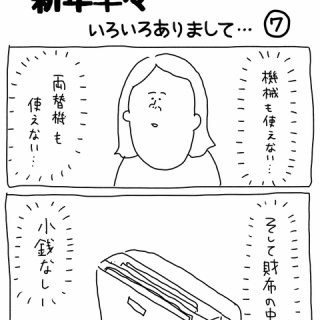 新年早々
いろいろありまして… ⑦
機械も使えない…
両替機も
使えない…
そして財布の中
小銭なしー